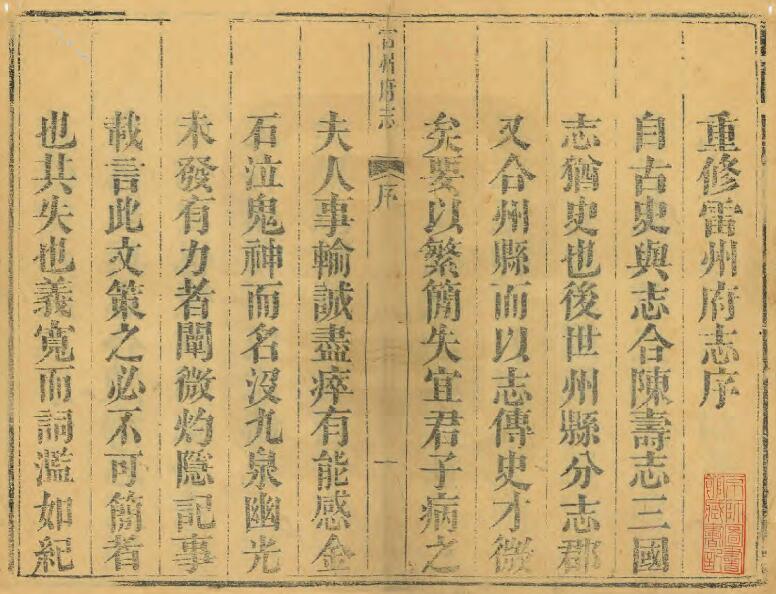 重修雷州府志序
自古史與志合陳壽志三國
志猶史也後世州縣分志郡
又合州縣而以志傳史才微
矣要以繁簡失宜君子病之
雷州府志 序 一
夫人事輸誠盡瘁有能感金
石泣鬼神而名沒九泉幽光
未發有力者闡微灼隱記事
載言此文策之必不可簡者
也其失也義寬而詞濫如紀